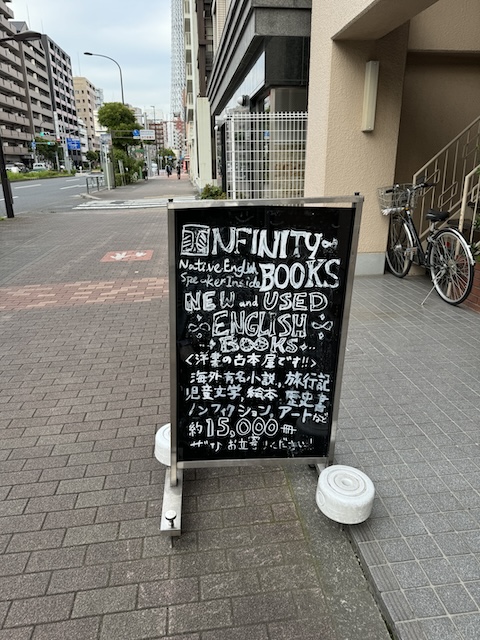 INFINITY
Native English
Speaker Inside
BOOKS
NEW and USED
ENGLISH
BOOKS
<洋書の古本屋です!!>
海外有名小説、旅行記
児童文学、絵本、歴史書
ノンフィクション、アートなど
約15,000冊
ぜひお立寄りください!